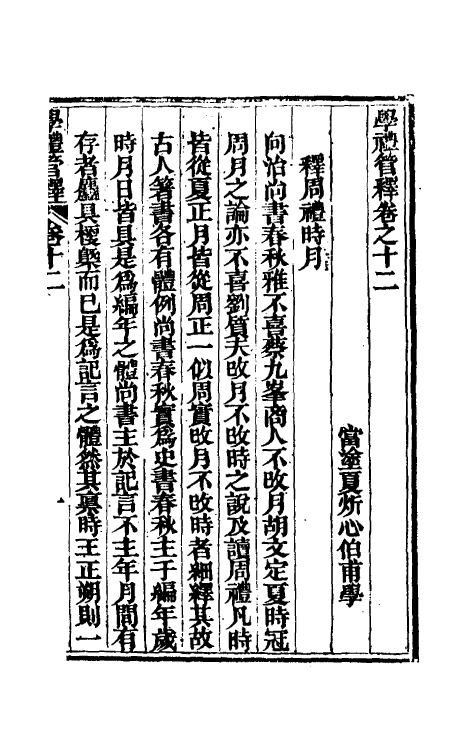 學禮管釋卷之十二
當塗夏炘心伯甫學
釋周禮時月
向治尚書春秋雅不喜蔡九峯商人不改月胡文定夏時冠
周月之論亦不喜劉質夫改月不改時之說及讀周禮凡時
皆從夏正月皆從周正一似周實改月不改時者細繹其故
古人箸書各有體例尚書春秋實爲史書春秋主于編年歲
時月日皆具是爲編年之體尚書主於記言不主年月間有
存者麤具梗槩而已是爲記言之體然其稟時王正朔則一
學禮管釋 卷十二